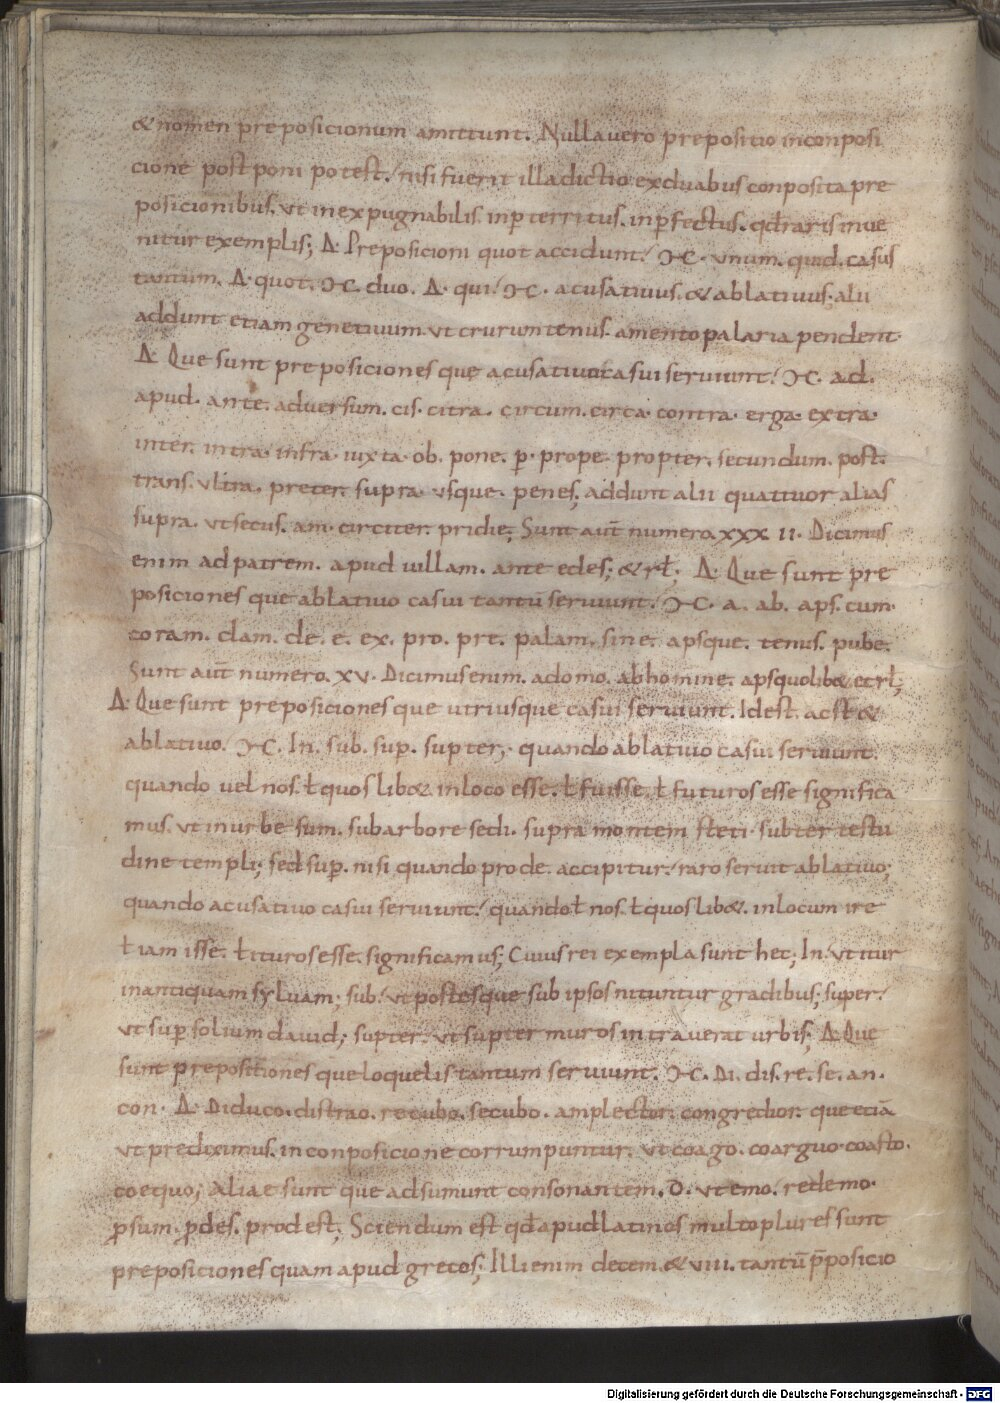 & nomen preposicionum amittunt. Nulla vero prepositio in conposi
cione postponi potest. nisi fuerit illa dictio ex duabus conposita pre
posicionibus. ut inexpugnabilis. inp̄territus. inp̄fectus. qđ raris inue
nitur exemplis; Δ. Preposicioni quot accidunt. ꟻC. unum. quid. casus
tantum. Δ. quot. ꟻC. duo. Δ. qui. ꟻC. acusatiuus. & ablatiuus; alii
addunt etiam genetiuum. ut crurum tenus. a mento palaria pendent.
Δ. Que sunt preposiciones que acusatiuo casui seruiunt. ꟻC. ad.
apud. ante. adversum. cis. citra. circum. circa. contra. erga. extra.
inter. intra. infra. iuxta. ob. pone. p̄. prope. propter. secundum. post.
trans. ultra. preter. supra. usque. penes; addunt alii quattuor alias
supra. ut secus. am. circiter. pridie; Sunt aut̄ numero. xxx ii. Dicimus
enim ad patrem. apud uillam. ante edes; & rł; Δ. Que sunt pre
posiciones que ablatiuo casui tantū seruiunt. ꟻC. a. ab. aps. cum.
coram. clam. de. e. ex. pro. pre. palam. sine. apsque. tenus. pube.
Sunt aut̄ numero. xv. Dicimus enim. a domo. ab homine. aps quolib& et rł;
Δ. Que sunt preposiciones que utriusque casui seruiunt. Idest. acst &
ablatiuo. ꟻC. In. sub. sup̄. supter; quando ablatiuo casui seruiunt.
quando uel nos. ł quoslib& in loco esse. ł fuisse. ł futuros esse significa
mus. ut in urbe sum. sub arbore sedi. supra montem steti. subter testu
dine templi; sed sup̄. nisi quando pro de. accipitur. raro seruit ablatiuo;
quando acusatiuo casui seruiunt. quando ł nos. ł quoslib&. in locum ire
ł iam isse. ł ituros esse. significamus; Cuius rei exempla sunt hec; In. ut itur
in antiquam syluam; sub. ut postesque sub ipsos nituntur gradibus; super.
ut sup̄ solium dauid; supter. ut supter muros intraverat urbis; Δ. Que
sunt prepositiones que loquelis tantum seruiunt. ꟻC. Di. dis. re. se. an.
con. Δ. Diduco. distrao. recubo. secubo. amplector. congredior. que etiā
ut prediximus. in conposicione corrumpuntur. ut coago. coarguo. coasto.
coequo; Aliae sunt que adsumunt consonantem. d. ut emo. redemo.
p̄sum. p̄des. prodest; Sciendum est qđ apud latinos multo plures sunt
preposiciones quam apud grecos; Illi enim decem. & viii. tantū p̄posicio
Digitalisierung gefördert durch die Deutsche Forschungsgemeinschaft - DFG